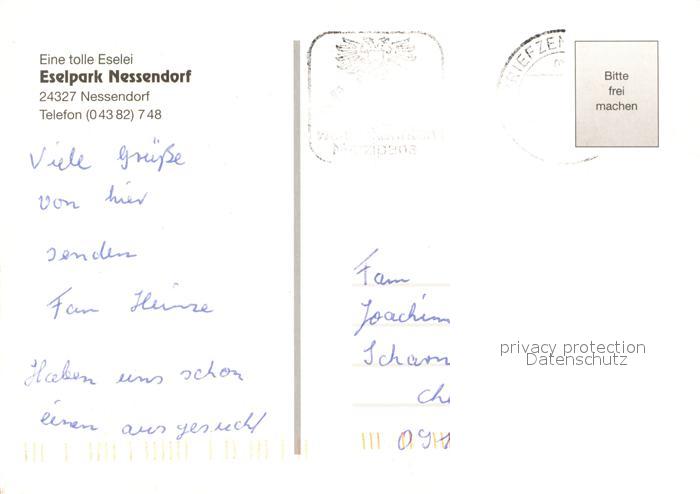 Eine tolle Eselei
Eselpark Nessendorf
24327 Nessendorf
Telefon (0 43 82) 7 48
Viele Grüße
von hier
senden
Fam Heinze
Haben uns schon
einen ausgesucht
BRIEFZEN
Marzipans
Bitte
frei
machen
Fam
Joachim
Scharn
Che
09
privacy protection
Datenschutz